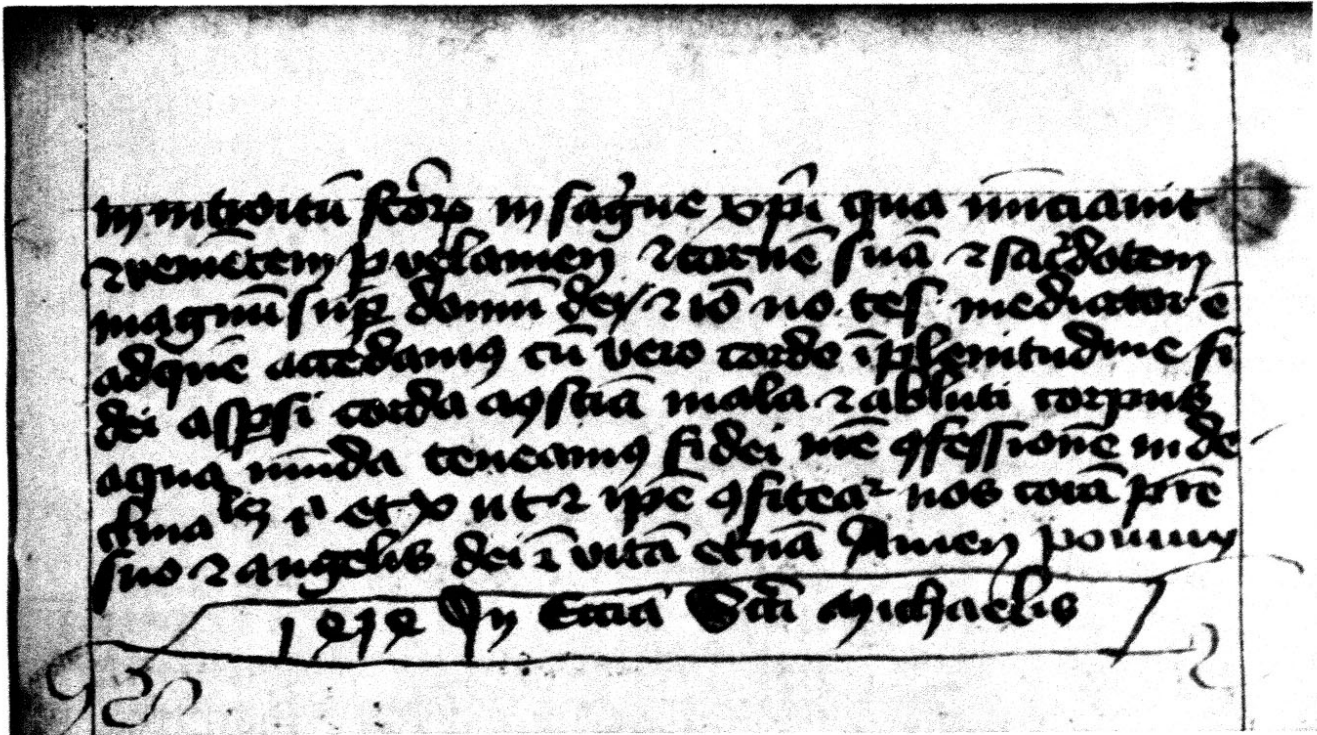 in introitū scōrꝫ in sāgͥne xp̄i qua inīciauit
⁊ veniētem p velamen ⁊ carnē suā ⁊ sacͬdotem
magnū suꝑ domū dei / ⁊ iō no. tes. mediator ē
ad quē accedamꝰ cū vero corde ī plenitudine fi
dei asꝑsi corda a ꝯsciā mala ⁊ abluti corpus
aqua mūda teneamꝰ fidei nr̄e ꝯfessionē in de
clinabilē et ut ⁊ ip̄e ꝯfiteaᷣ nos corā pr̄e
suo ⁊ angelis dei ī vitā et̄nā Amen
1414 In Ecc̄ia Sc̄i Michaelis